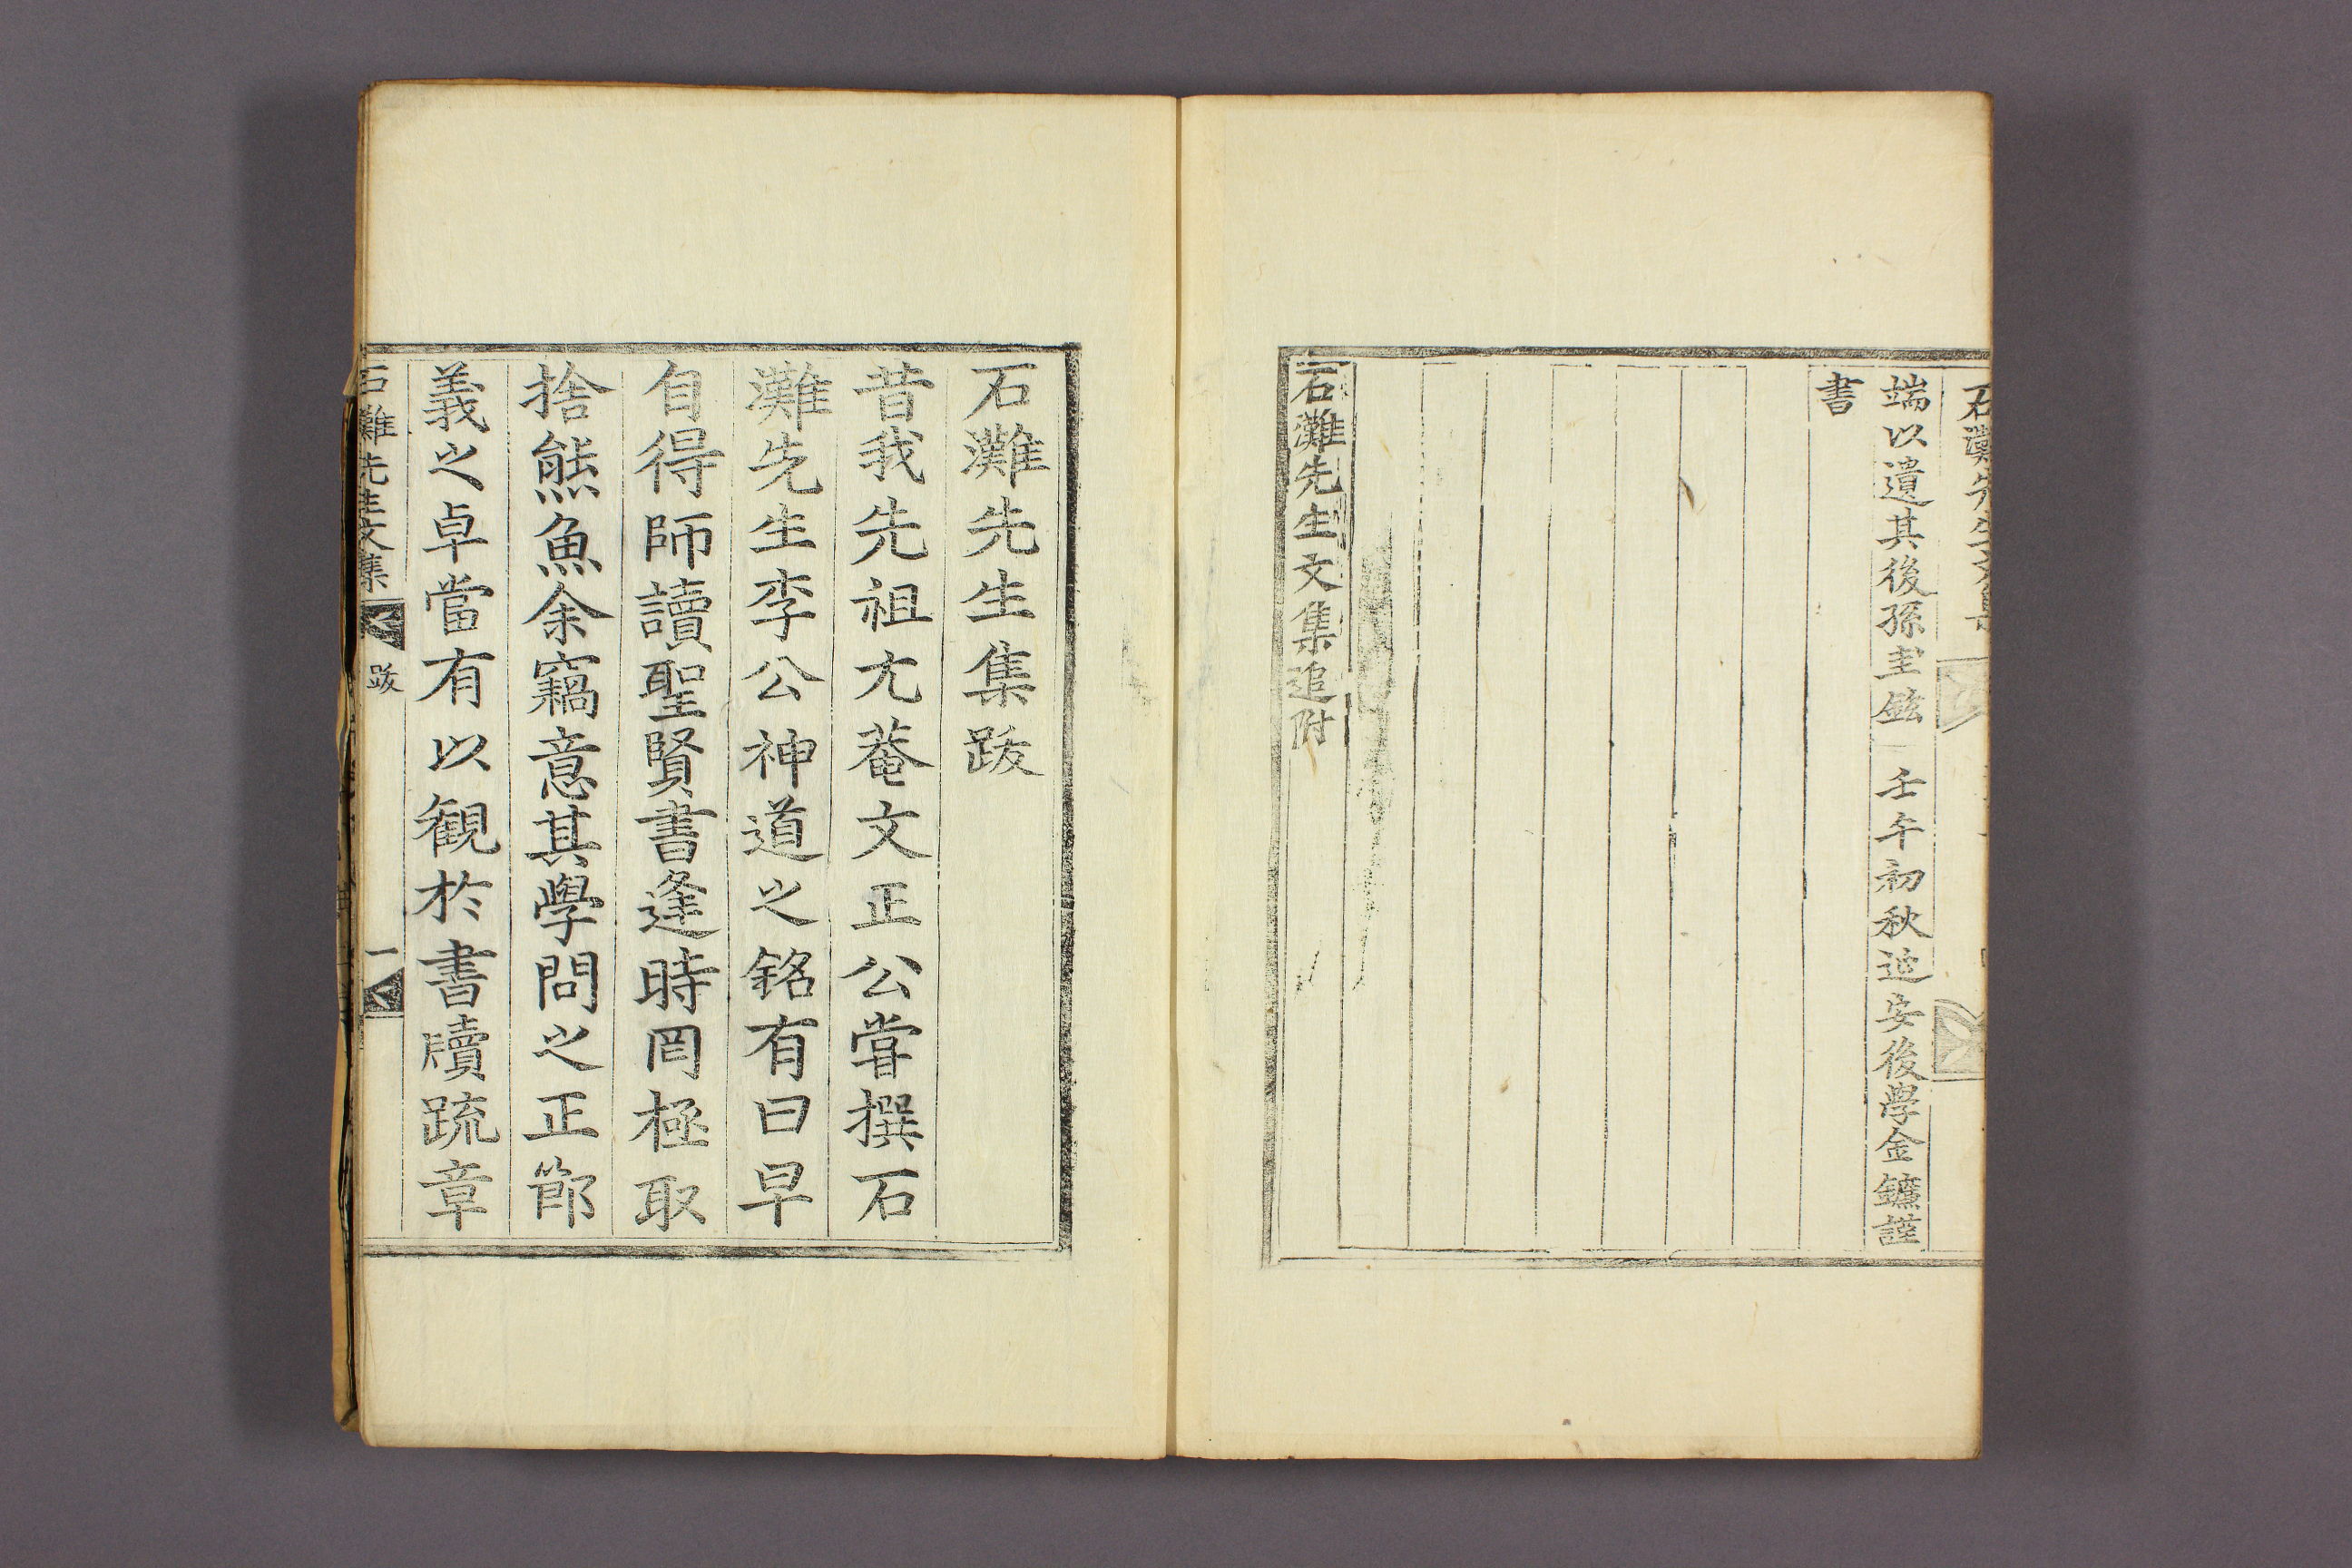 石灘先生文集
端以遺其後孫圭鉉 壬午初秋延安後學金鑣謹
書
石灘先生文集追附
石灘先生集跋
昔我先祖尤菴文正公嘗撰石
灘先生李公神道之銘有曰早
自得師讀聖賢書逢時罔極取
捨熊魚余竊意其學問之正節
義之卓當有以觀於書牘疏章
石灘先生文集 跋 一